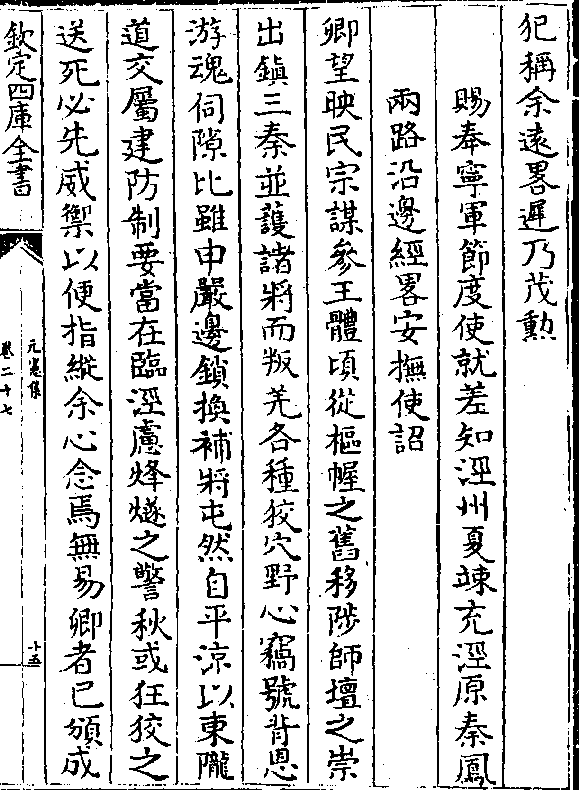 犯稱余遠畧遲乃茂勲
賜奉寧軍節度使就差知涇州夏竦充涇原秦鳳
兩路沿邊經畧安撫使詔
卿望映民宗謀參王體頃從樞幄之舊移陟師壇之崇
出鎮三秦並護諸將而叛羌各種狡穴野心竊號背恩
游魂伺隙比雖申嚴邊鎖換補將屯然自平涼以東隴
道交屬建防制要當在臨涇慮烽燧之警秋或狂狡之
送死必先威禦以便指縱余心念焉無易卿者已頒成
欽定四庫全書
元憲集
卷二十七
十五